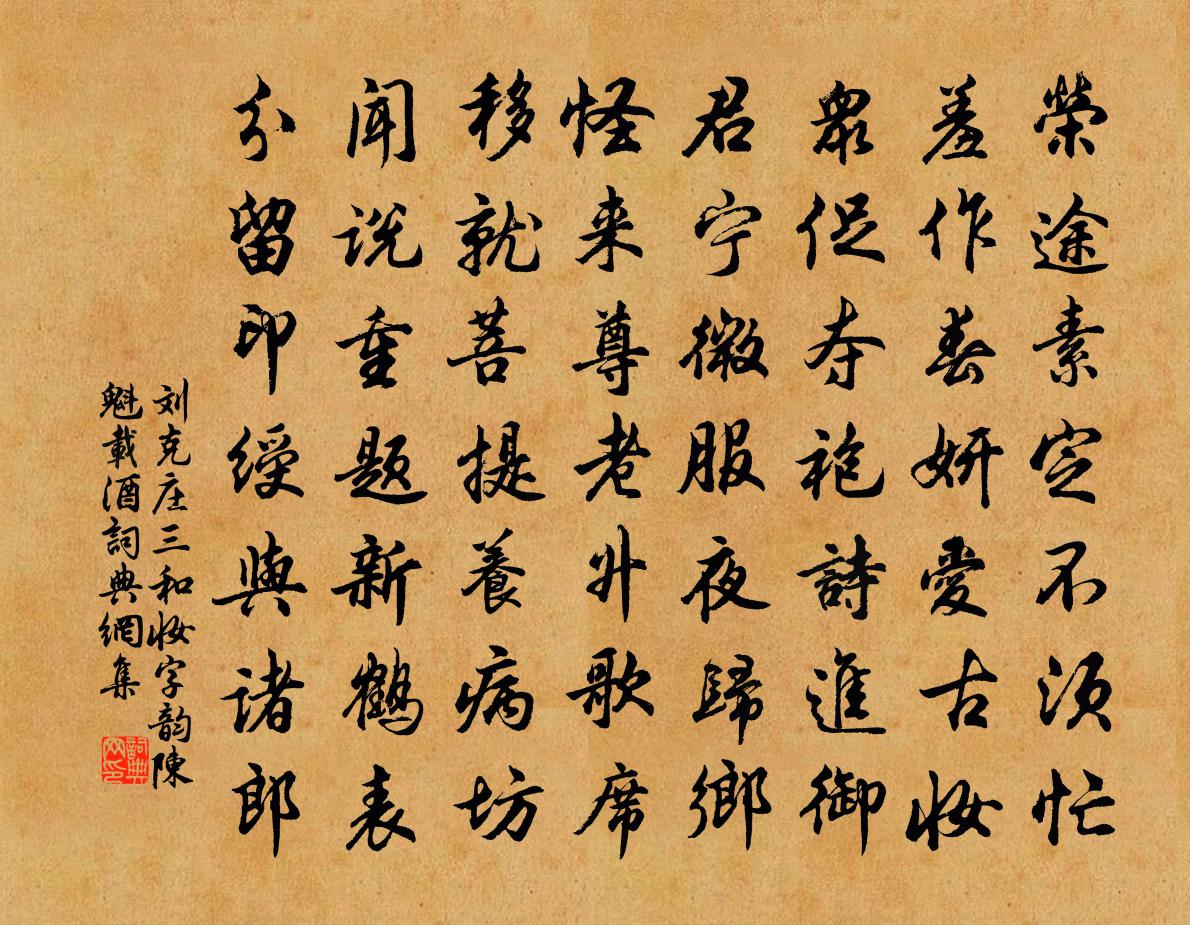 榮途素定不須忙
羞作春妍愛古妝
衆促夺袍詩進御
君宁微服夜歸鄉
怪来尊老升歌席
移就菩提養病坊
闻说重题新鹤表
分留印绶與诸郎
刘克庄三和妆字韵陳
魁載酒詞典網集
詞典网印